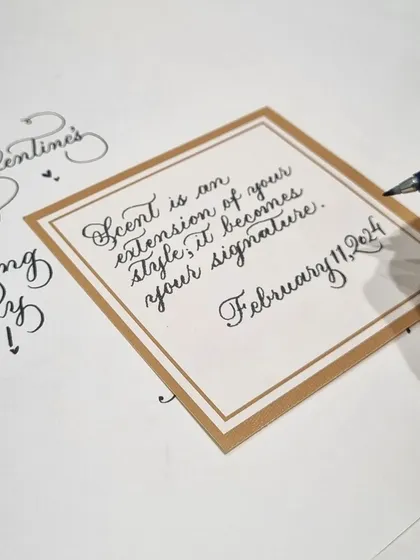 Scent is an
extension of your
style; it becomes
your signature.
February 11, 2024